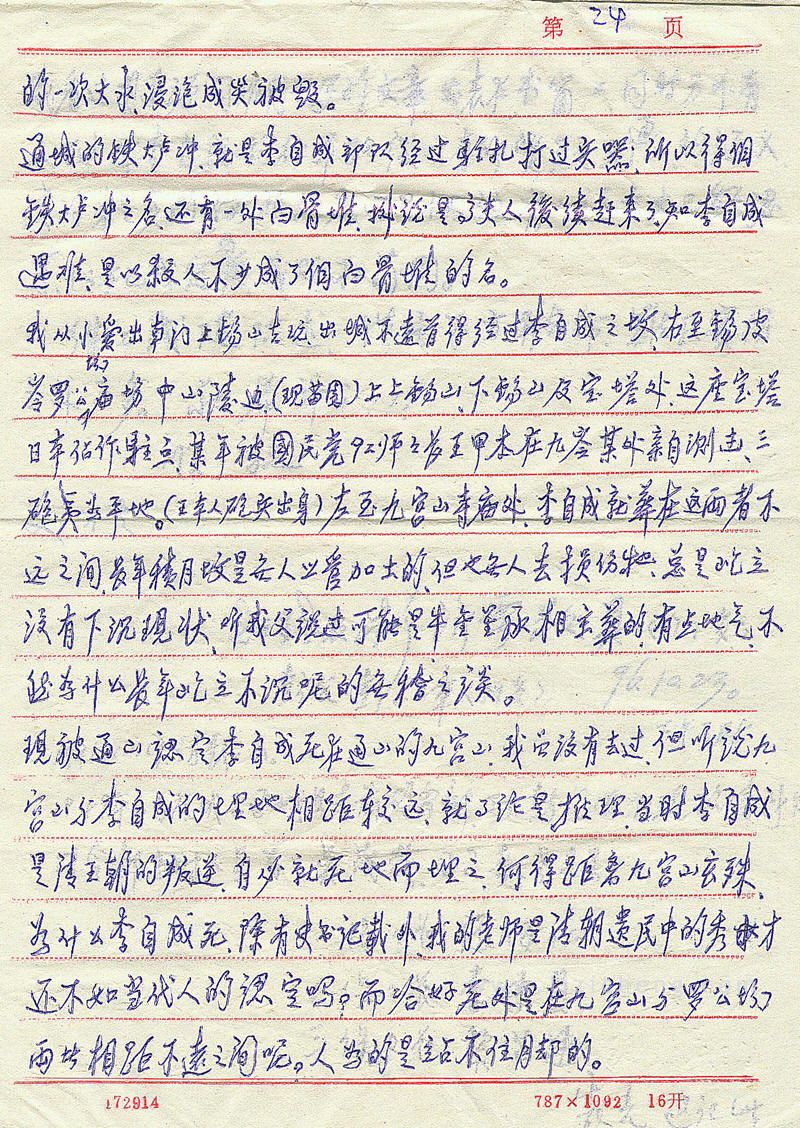 第 24 页
的一次大水,浸泡成灾被毁。
通城的铁炉冲,就是李自成部队经过駐扎打过兵器,所以得個
铁炉冲之名,还有一处白骨堆,据说是高夫人後續赶来了,知李自成
遇难,是以杀人不少成了個白骨堆的名。
我从小爱出南门上锡山去玩,出城不遠首得经过李自成之坟,右至锡皮
岑罗公庙塲中山陵边(现苗圃)上上锡山、下锡山及宝塔处,这座宝塔
日本佔作駐点,某年被國民党92师师长王甲本在九岑某处亲自测击,三
砲夷为平地。(王本人砲兵出身)左至九宫山寺庙处,李自成就葬在这两者不
远之间,長年積月坟是無人以爱加土的,但也無人去损伤牠,总是屹立
没有下沉现状,听我父说过可能是牛金星丞相主葬的,有点地气,不
然为什么長年屹立不沉呢的無稽之谈。
96.10.23。
現被通山認定李自成死在通山的九宫山,我虽没有去过,但听说九
宫山与李自成的埋地相距较远,就理论是推理,当时李自成
是清王朝的叛逆,自必就死地而埋之,何得距离九宫山玄殊,
为什么李自成死,除有史书记載外,我的老师是清朝遗民中的秀才
还不如当代人的認定吗?而恰好死处是在九宫山与罗公塲
两处相距不遠之间呢。人为的是站不住脚的。
172914
787×1092 16开